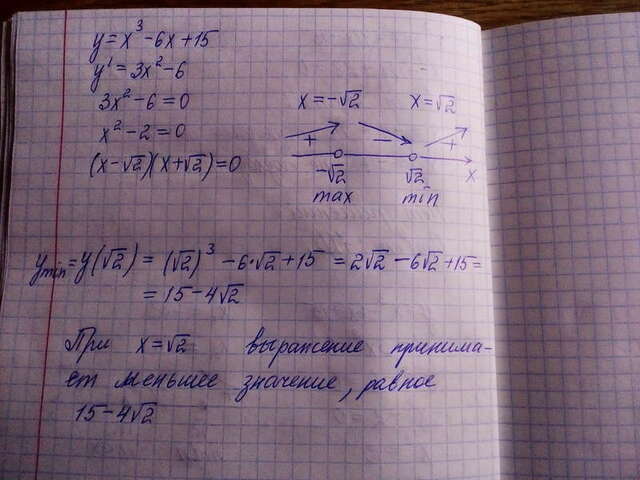 y = x³ - 6x + 15
y' = 3x² - 6
3x² - 6 = 0
x² - 2 = 0
(x - √2)(x + √2) = 0
x = -√2 x = √2
+ - +
-√2 √2 x
max min
y min = y(√2) = (√2)³ - 6·√2 + 15 = 2√2 - 6√2 + 15 =
= 15 - 4√2
При x = √2 выражение принима-
ет меньшее значение, равное
15 - 4√2